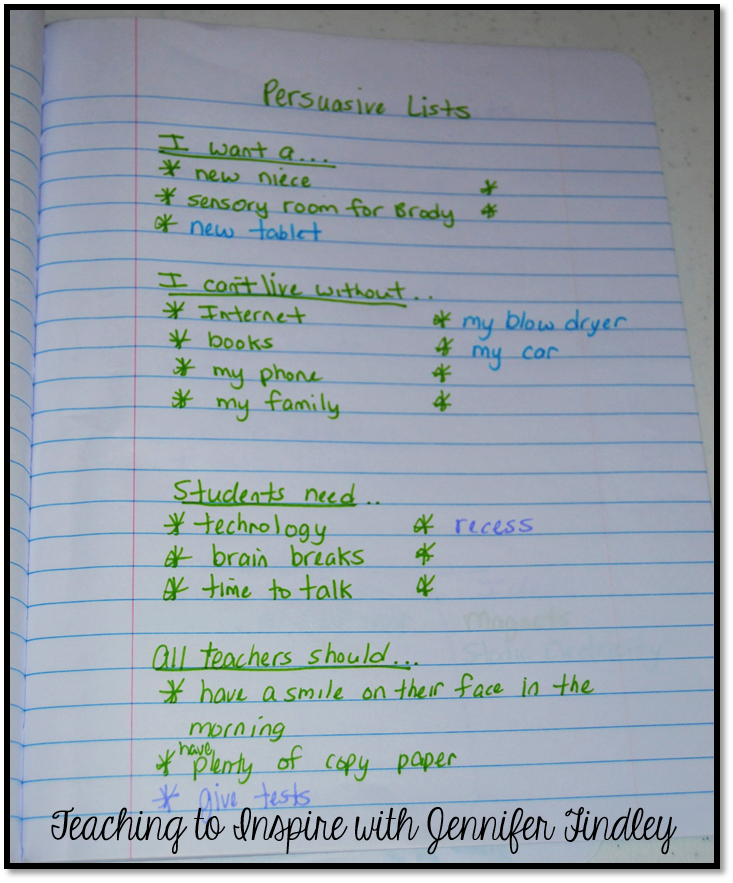 Persuasive Lists
I want a...
* new niece *
* sensory room for Brody *
* new tablet
I can't live without..
* Internet * my blow dryer
* books * my car
* my phone *
* my family *
Students need..
* technology * recess
* brain breaks *
* time to talk *
Magnets
Static Electricity
All teachers should...
* have a smile on their face in the
morning
* have plenty of copy paper
* give tests
Teaching to Inspire with Jennifer Findley